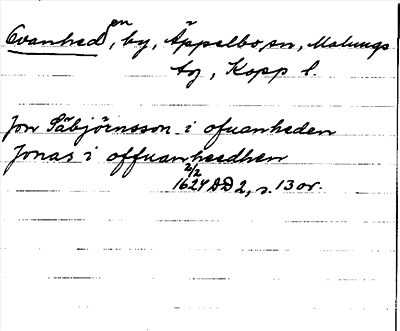 Ovanheden, by, Äppelbo sn, Malungs
tg, Kopp l.
Jon Säbjörnsson i ofuanheden
Jonas i offuanheedhen
2/2
1624 DD 2, s. 13 or.